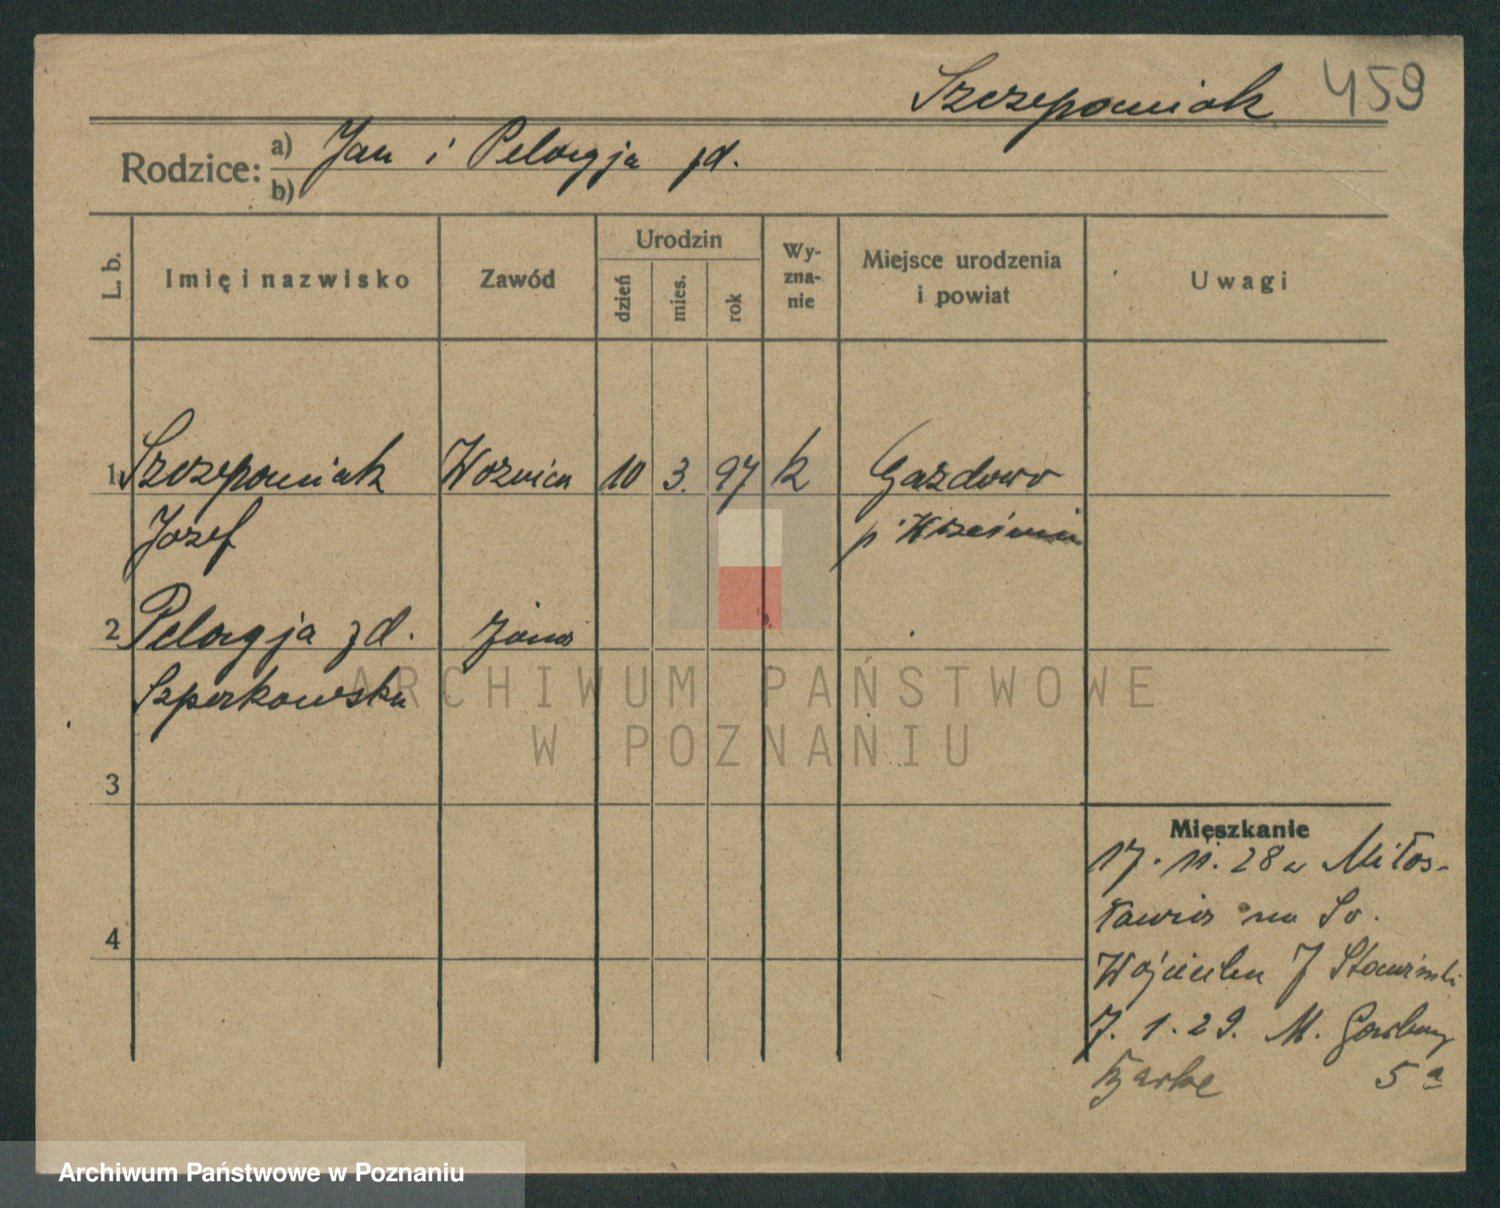 Szczepaniak 459
Rodzice: a) Jan i Pelagja zd.
b)
L. b. Imię i nazwisko Zawód Urodzin dzień mies. rok Wy-zna-nie Miejsce urodzenia i powiat Uwagi
1 Szczepaniak Woźnica 10 3. 97 k Gazdowo
Józef p. Września
2 Pelagja zd. żona
Szperkowska
3
Mieszkanie
17. 11. 28 z Miłos-
ławia na Św.
4
Wojciecha
7. 1. 29. M. Garbary
5a
ARCHIWUM PAŃSTWOWE
W POZNANIU
Archiwum Państwowe w Poznaniu